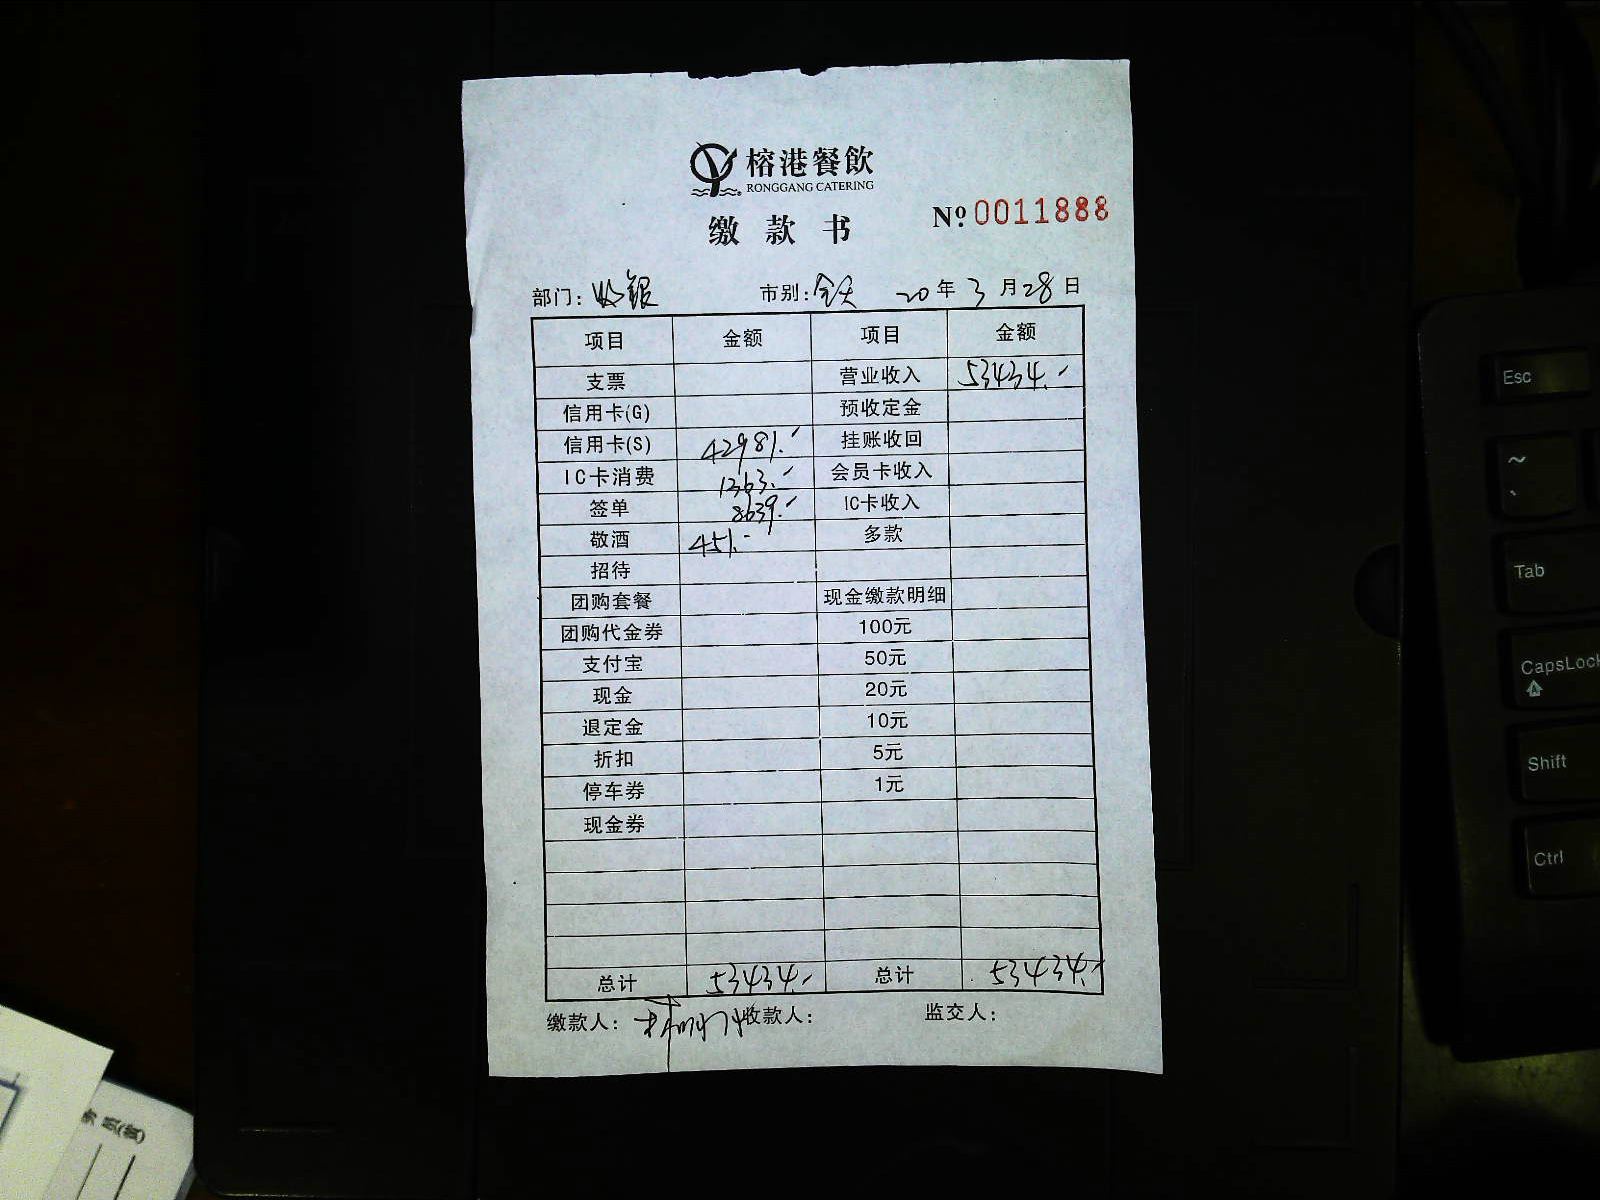 榕港餐飲
RONGGANG CATERING
缴款书
Nº 0011888
部门：收银 市别：全天 20年3月28日
项目 金额 项目 金额
支票 营业收入 53434.-
信用卡(G) 预收定金
信用卡(S) 42981.- 挂账收回
IC卡消费 1363.- 会员卡收入
签单 8639.- IC卡收入
敬酒 451.- 多款
招待
团购套餐 现金缴款明细
团购代金券 100元
支付宝 50元
现金 20元
退定金 10元
折扣 5元
停车券 1元
现金券
总计 53434.- 总计 53434.-
缴款人： 收款人： 监交人：
Esc
~
Tab
CapsLock
Shift
Ctrl